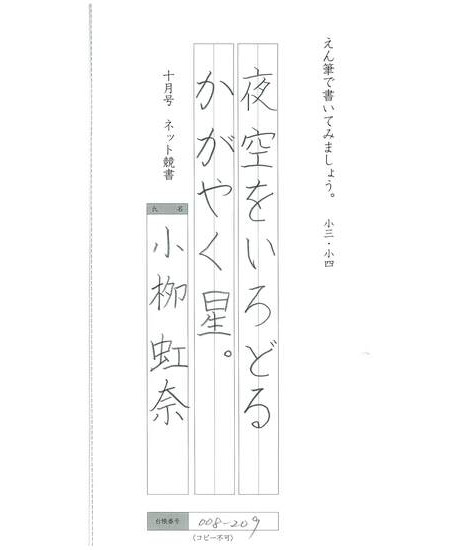 えん筆で書いてみましょう。 小三・小四
夜空をいろどる
かがやく星。
十月号 ネット競書
氏名
小柳 虹奈
台帳番号 008-209
(コピー不可)